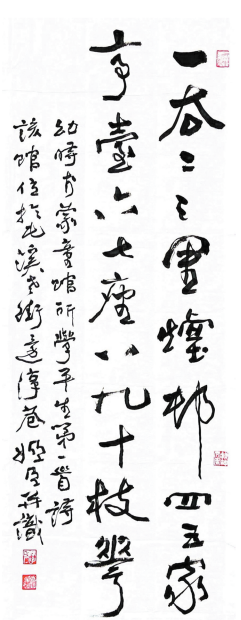 一去二三里煙邨四五家
亭臺六七座八九十枝華
幼時於蒙童館所學平生第一首詩
該館位於屯溪老街還淳巷